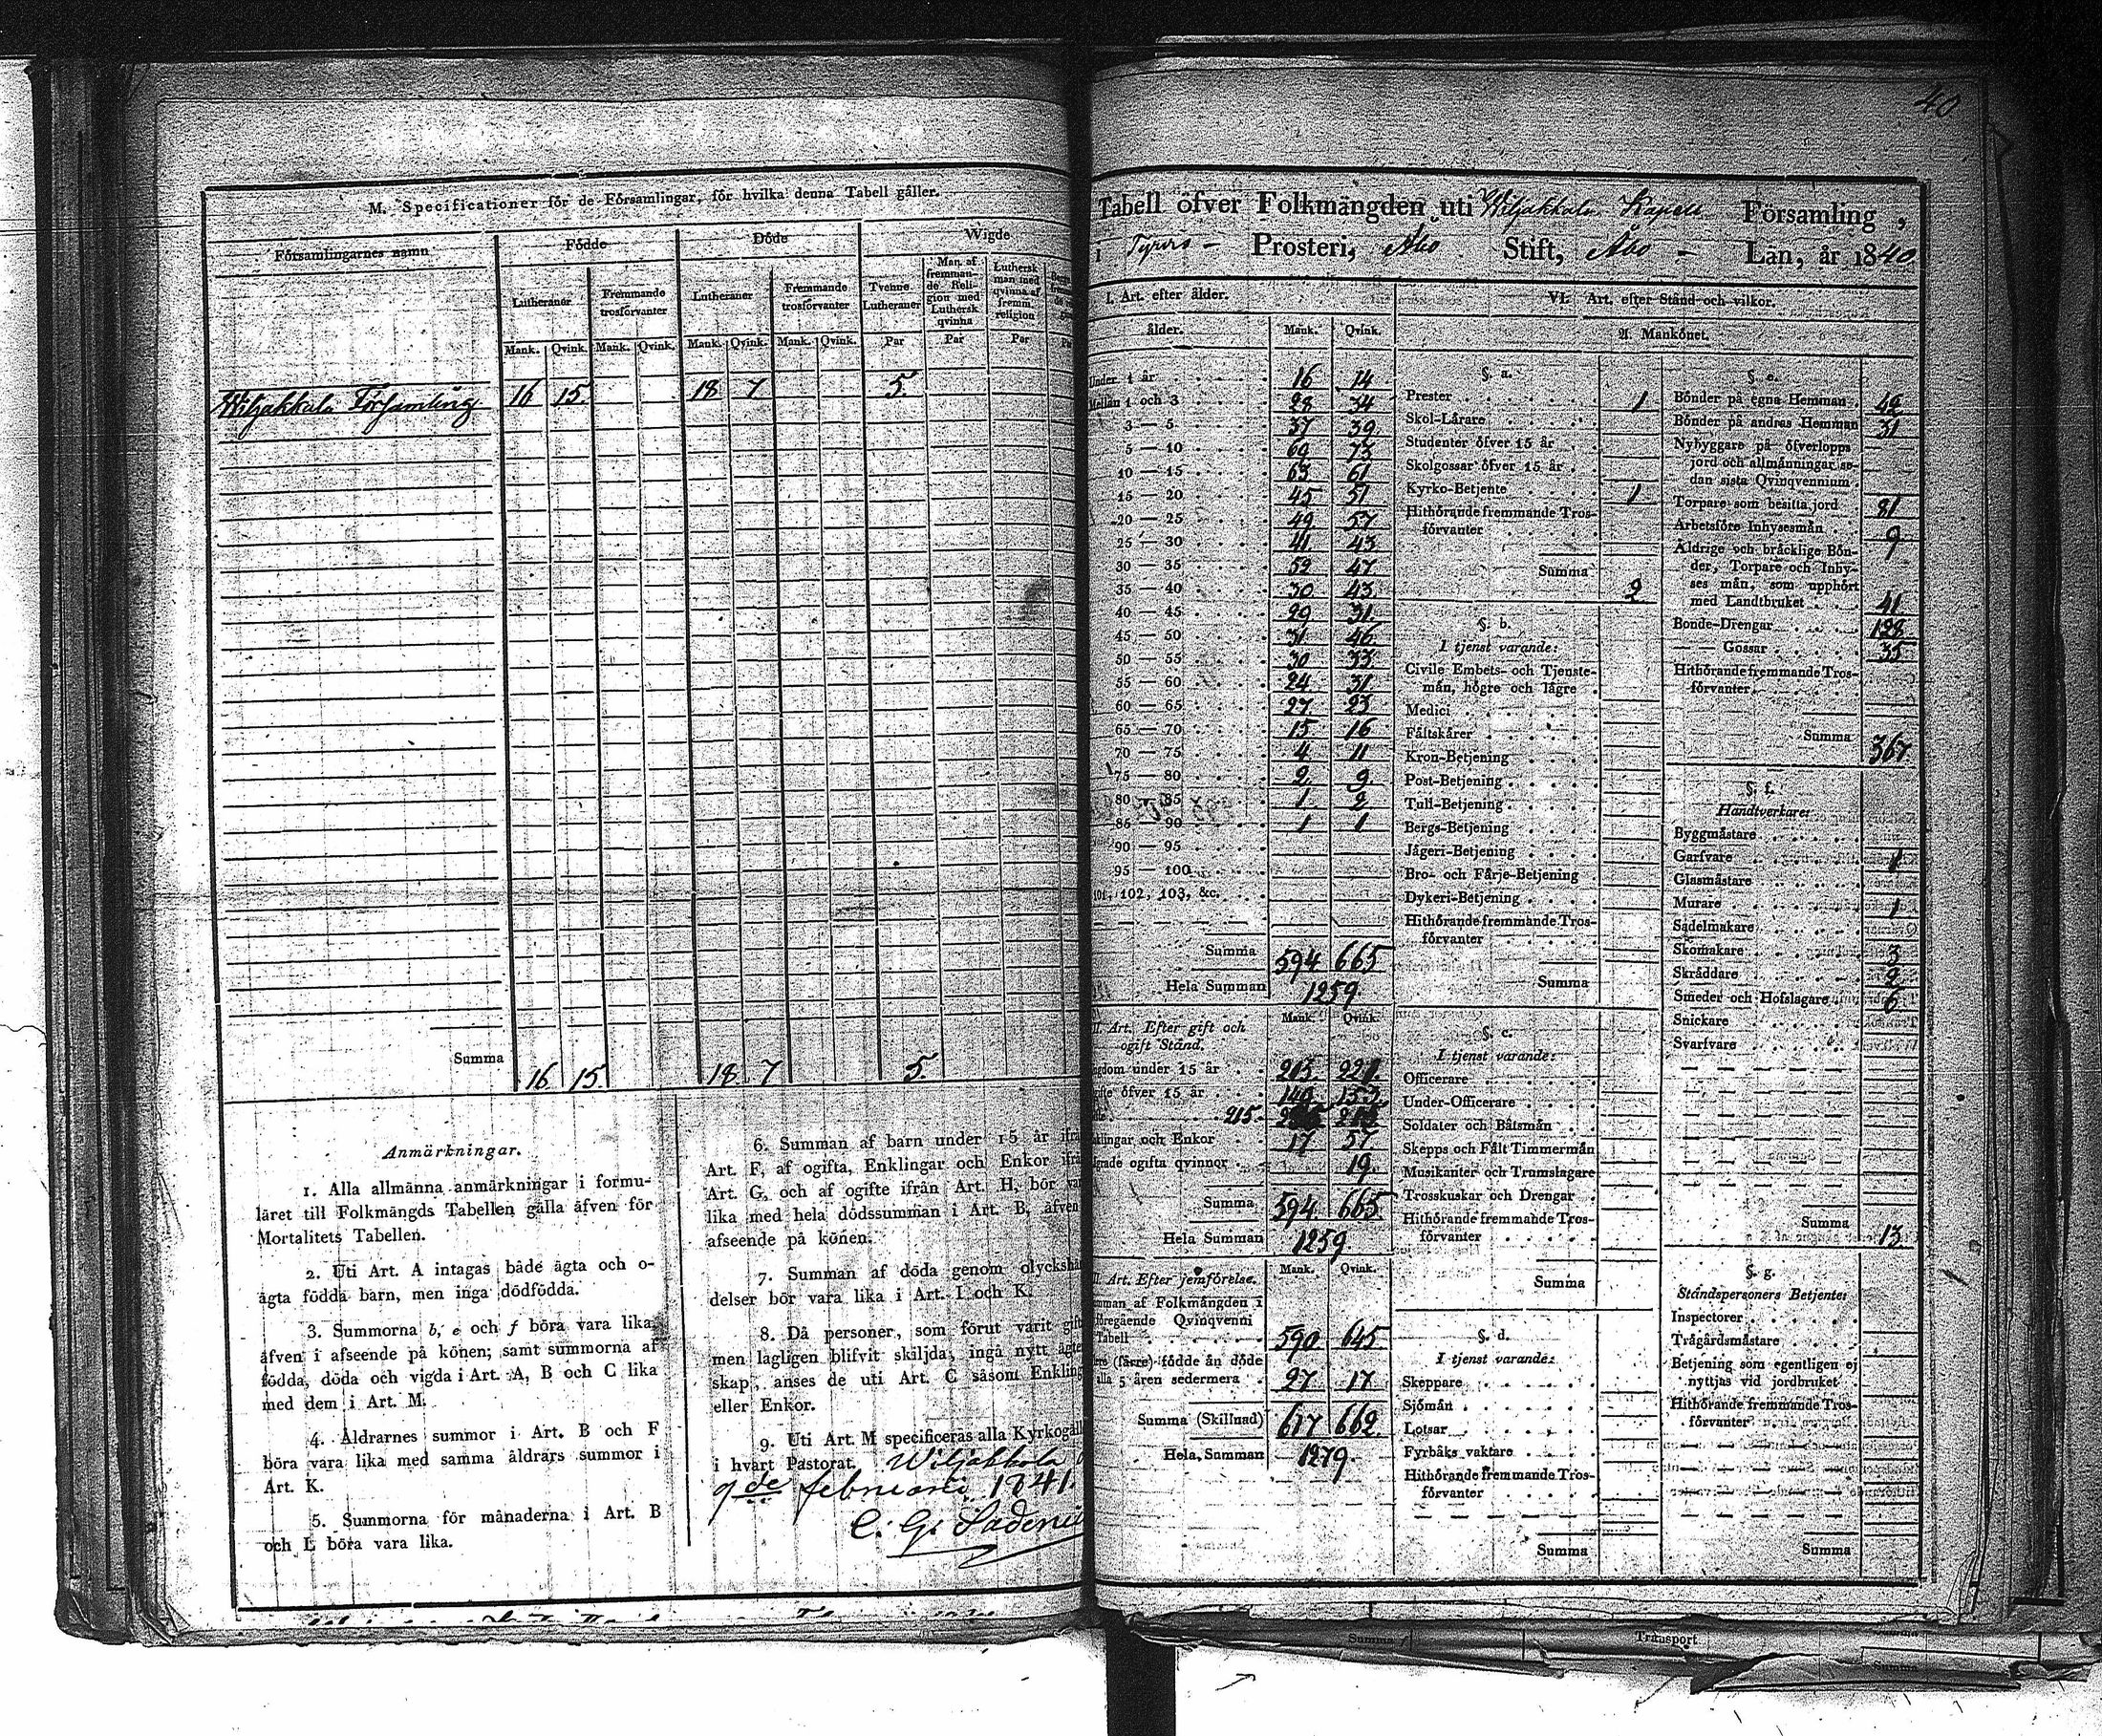 M. Specificationer för de Församlingar, för hvilka denna Tabell gäller.
Församlingarnes namn
Födde
Döde
Wigde
Lutheraner
Fremmande trosförvanter
Lutheraner
Fremmande trosförvanter
Tvenne Lutheraner
Man af fremmande Religion med Luthersk qvinha
Luthersk man med qvinna af fremm. religion
Mank. Qvink. Mank. Qvink. Mank. Qvink. Mank. Qvink. Par Par Par
Wiljakkala Församling 16 15 18 7 5.
Summa 16 15. 18 7 5.
Anmärkningar.
1. Alla allmänna anmärkningar i formu-
läret till Folkmängds Tabellen gälla äfven för
Mortalitets Tabellen.
2. Uti Art. A intagas både ägta och o-
ägta födda barn, men inga dödfödda.
3. Summorna b, e och f böra vara lika
äfven i afseende på könen; samt summorna af
födda, döda och vigda i Art. A, B och C lika
med dem i Art. M.
4. Åldrarnes summor i Art. B och F
böra vara lika med samma åldrars summor i
Art. K.
5. Summorna för månaderna i Art. B
och L böra vara lika.
6. Summan af barn under 15 år
Art. F, af ogifta, Enklingar och Enkor
Art. G, och af ogifte ifrån Art. H, bör
lika med hela dödssumman i Art. B, äfven
afseende på könen.
7. Summan af döda genom
delser bör vara lika i Art. I och K.
8. Då personer, som förut varit
men lagligen blifvit skiljda, ingå nytt
skap, anses de uti Art. C såsom
eller Enkor.
9. Uti Art. M specificeras alla
i hvart Pastorat. Wiljakkala
9de februarii 1841.
C. G.
40
Tabell öfver Folkmängden uti Wiljakkala Kapell Församling,
i Tyrvis Prosteri, Åbo Stift, Åbo Län, år 1840
I. Art. efter ålder.
ålder. Mank. Qvink.
Under 1 år 16 14
Mellan 1 och 3 28 34
3 — 5 37 39
5 — 10 69 73
10 — 15 63 61
15 — 20 45 51
20 — 25 49 57
25 — 30 41 43
30 — 35 52 47
35 — 40 30 43
40 — 45 29 31
45 — 50 31 46
50 — 55 30 33
55 — 60 24 31
60 — 65 27 23
65 — 70 15 16
70 — 75 4 11
75 — 80 2 9
80 — 85 1 2
85 — 90 1 1
90 — 95
95 — 100
101, 102, 103, &c.
Summa 594 665
Hela Summan 1259.
II. Art. Efter gift och
ogift Stånd.
Mank. Qvink.
under 15 år 213 221
öfver 15 år 149 153
215. 215
och Enkor 17 57
ogifta qvinnor 19.
Summa 594 665
Hela Summan 1259
Art. Efter jemförelse. Mank. Qvink.
af Folkmängden i
Qvinqvenni
Tabell 590 645
(färre) födde än döde
5 åren sedermera 27 17
Summa (Skillnad) 617 662
Hela Summan 1279.
VI. Art. efter Stånd och vilkor.
A. Mankönet.
§. a.
Prester 1
Skol-Lärare
Studenter öfver 15 år
Skolgossar öfver 15 år
Kyrko-Betjente 1
Hithörande fremmande Tros-
förvanter
Summa 2
§. b.
I tjenst varande:
Civile Embets- och Tjenste-
män, högre och lägre
Medici
Fältskärer
Kron-Betjening
Post-Betjening
Tull-Betjening
Bergs-Betjening
Jägeri-Betjening
Bro- och Färje-Betjening
Dykeri-Betjening
Hithörande fremmande Tros-
förvanter
Summa
§. c.
I tjenst varande:
Officerare
Under-Officerare
Soldater och Båtsmän
Skepps och Fält Timmermän
Musikanter och Trumslagare
Trosskuskar och Drengar
Hithörande fremmande Tros-
förvanter
Summa
§. d.
I tjenst varande:
Skeppare
Sjömän
Lotsar
Fyrbåks vaktare
Hithörande fremmande Tros-
förvanter
Summa
§. e.
Bönder på egna Hemman 42
Bönder på andras Hemman 31
Nybyggare på öfverlopps
jord och allmänningar se-
dan sista Qvinqvennium
Torpare som besitta jord 81
Arbetsföre Inhysesmän 9
Åldrige och bräcklige Bön-
der, Torpare och Inhy-
ses män, som upphört
med Landtbruket 41
Bonde-Drengar 128
— — Gossar 35
Hithörande fremmande Tros-
förvanter
Summa 367
§. f.
Handtverkare:
Byggmästare
Garfvare 1
Glasmästare
Murare 1
Sadelmakare
Skomakare 3
Skräddare 2
Smeder och Hofslagare 6
Snickare
Svarfvare
Summa 13
§. g.
Ståndspersoners Betjente:
Inspectorer
Trägårdsmästare
Betjening som egentligen ej
nyttjas vid jordbruket
Hithörande fremmande Tros-
förvanter
Summa
Summa
Transport
Summa